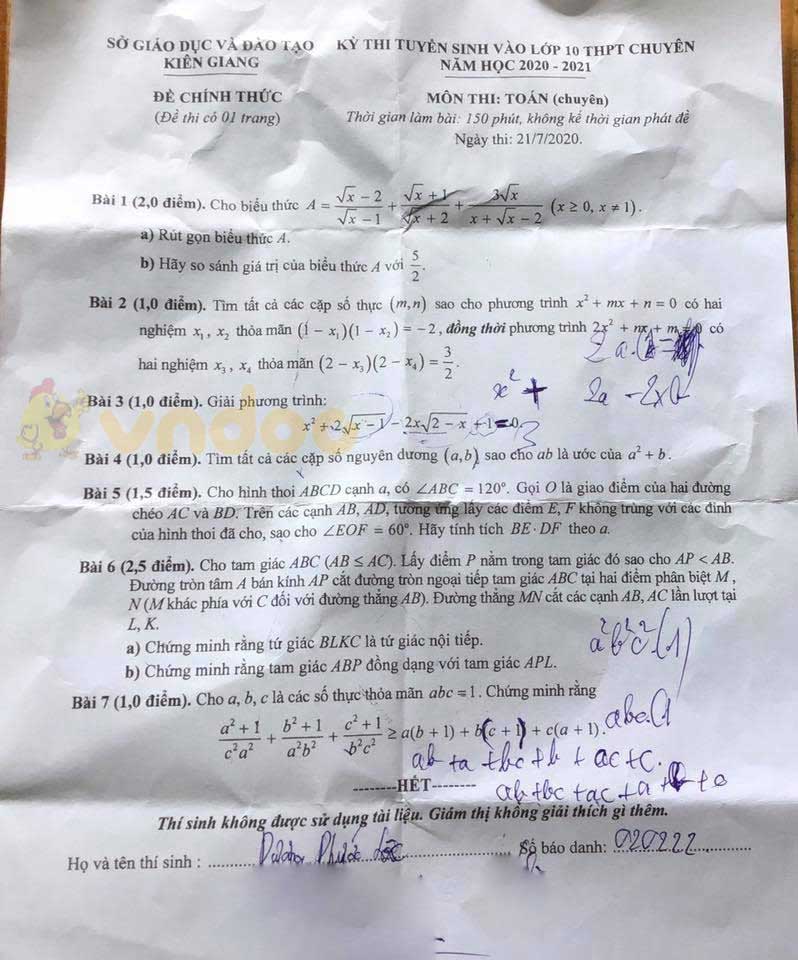 SỞ GIÁO DỤC VÀ ĐÀO TẠO
KIÊN GIANG
KỲ THI TUYỂN SINH VÀO LỚP 10 THPT CHUYÊN
NĂM HỌC 2020 - 2021
ĐỀ CHÍNH THỨC
(Đề thi có 01 trang)
MÔN THI: TOÁN (chuyên)
Thời gian làm bài: 150 phút, không kể thời gian phát đề
Ngày thi: 21/7/2020.
Bài 1 (2,0 điểm). Cho biểu thức A = (√x − 2)/(√x − 1) + (√x + 1)/(√x + 2) + 3√x/(x + √x − 2) (x ≥ 0, x ≠ 1).
a) Rút gọn biểu thức A.
b) Hãy so sánh giá trị của biểu thức A với 5/2.
Bài 2 (1,0 điểm). Tìm tất cả các cặp số thực (m,n) sao cho phương trình x² + mx + n = 0 có hai
nghiệm x₁, x₂ thỏa mãn (1 − x₁)(1 − x₂) = −2, đồng thời phương trình 2x² + nx + m = 0 có
hai nghiệm x₃, x₄ thỏa mãn (2 − x₃)(2 − x₄) = 3/2.
x² + 2a − 2x
Bài 3 (1,0 điểm). Giải phương trình:
x² + 2√(x − 1) − 2x√(2 − x) + 1 = 0.
vndoc
Bài 4 (1,0 điểm). Tìm tất cả các cặp số nguyên dương (a,b) sao cho ab là ước của a² + b.
Bài 5 (1,5 điểm). Cho hình thoi ABCD cạnh a, có ∠ABC = 120°. Gọi O là giao điểm của hai đường
chéo AC và BD. Trên các cạnh AB, AD, tương ứng lấy các điểm E, F không trùng với các đỉnh
của hình thoi đã cho, sao cho ∠EOF = 60°. Hãy tính tích BE · DF theo a.
Bài 6 (2,5 điểm). Cho tam giác ABC (AB ≤ AC). Lấy điểm P nằm trong tam giác đó sao cho AP < AB.
Đường tròn tâm A bán kính AP cắt đường tròn ngoại tiếp tam giác ABC tại hai điểm phân biệt M,
N (M khác phía với C đối với đường thẳng AB). Đường thẳng MN cắt các cạnh AB, AC lần lượt tại
L, K.
a) Chứng minh rằng tứ giác BLKC là tứ giác nội tiếp.
b) Chứng minh rằng tam giác ABP đồng dạng với tam giác APL.
a²b²c²(1)
Bài 7 (1,0 điểm). Cho a, b, c là các số thực thỏa mãn abc = 1. Chứng minh rằng
(a² + 1)/(c²a²) + (b² + 1)/(a²b²) + (c² + 1)/(b²c²) ≥ a(b + 1) + b(c + 1) + c(a + 1).
ab + a + bc + b + ac + c.
--------HẾT--------
ab + bc + ac + a + b + c
Thí sinh không được sử dụng tài liệu. Giám thị không giải thích gì thêm.
Họ và tên thí sinh : Phước Lộc Số báo danh: 020222